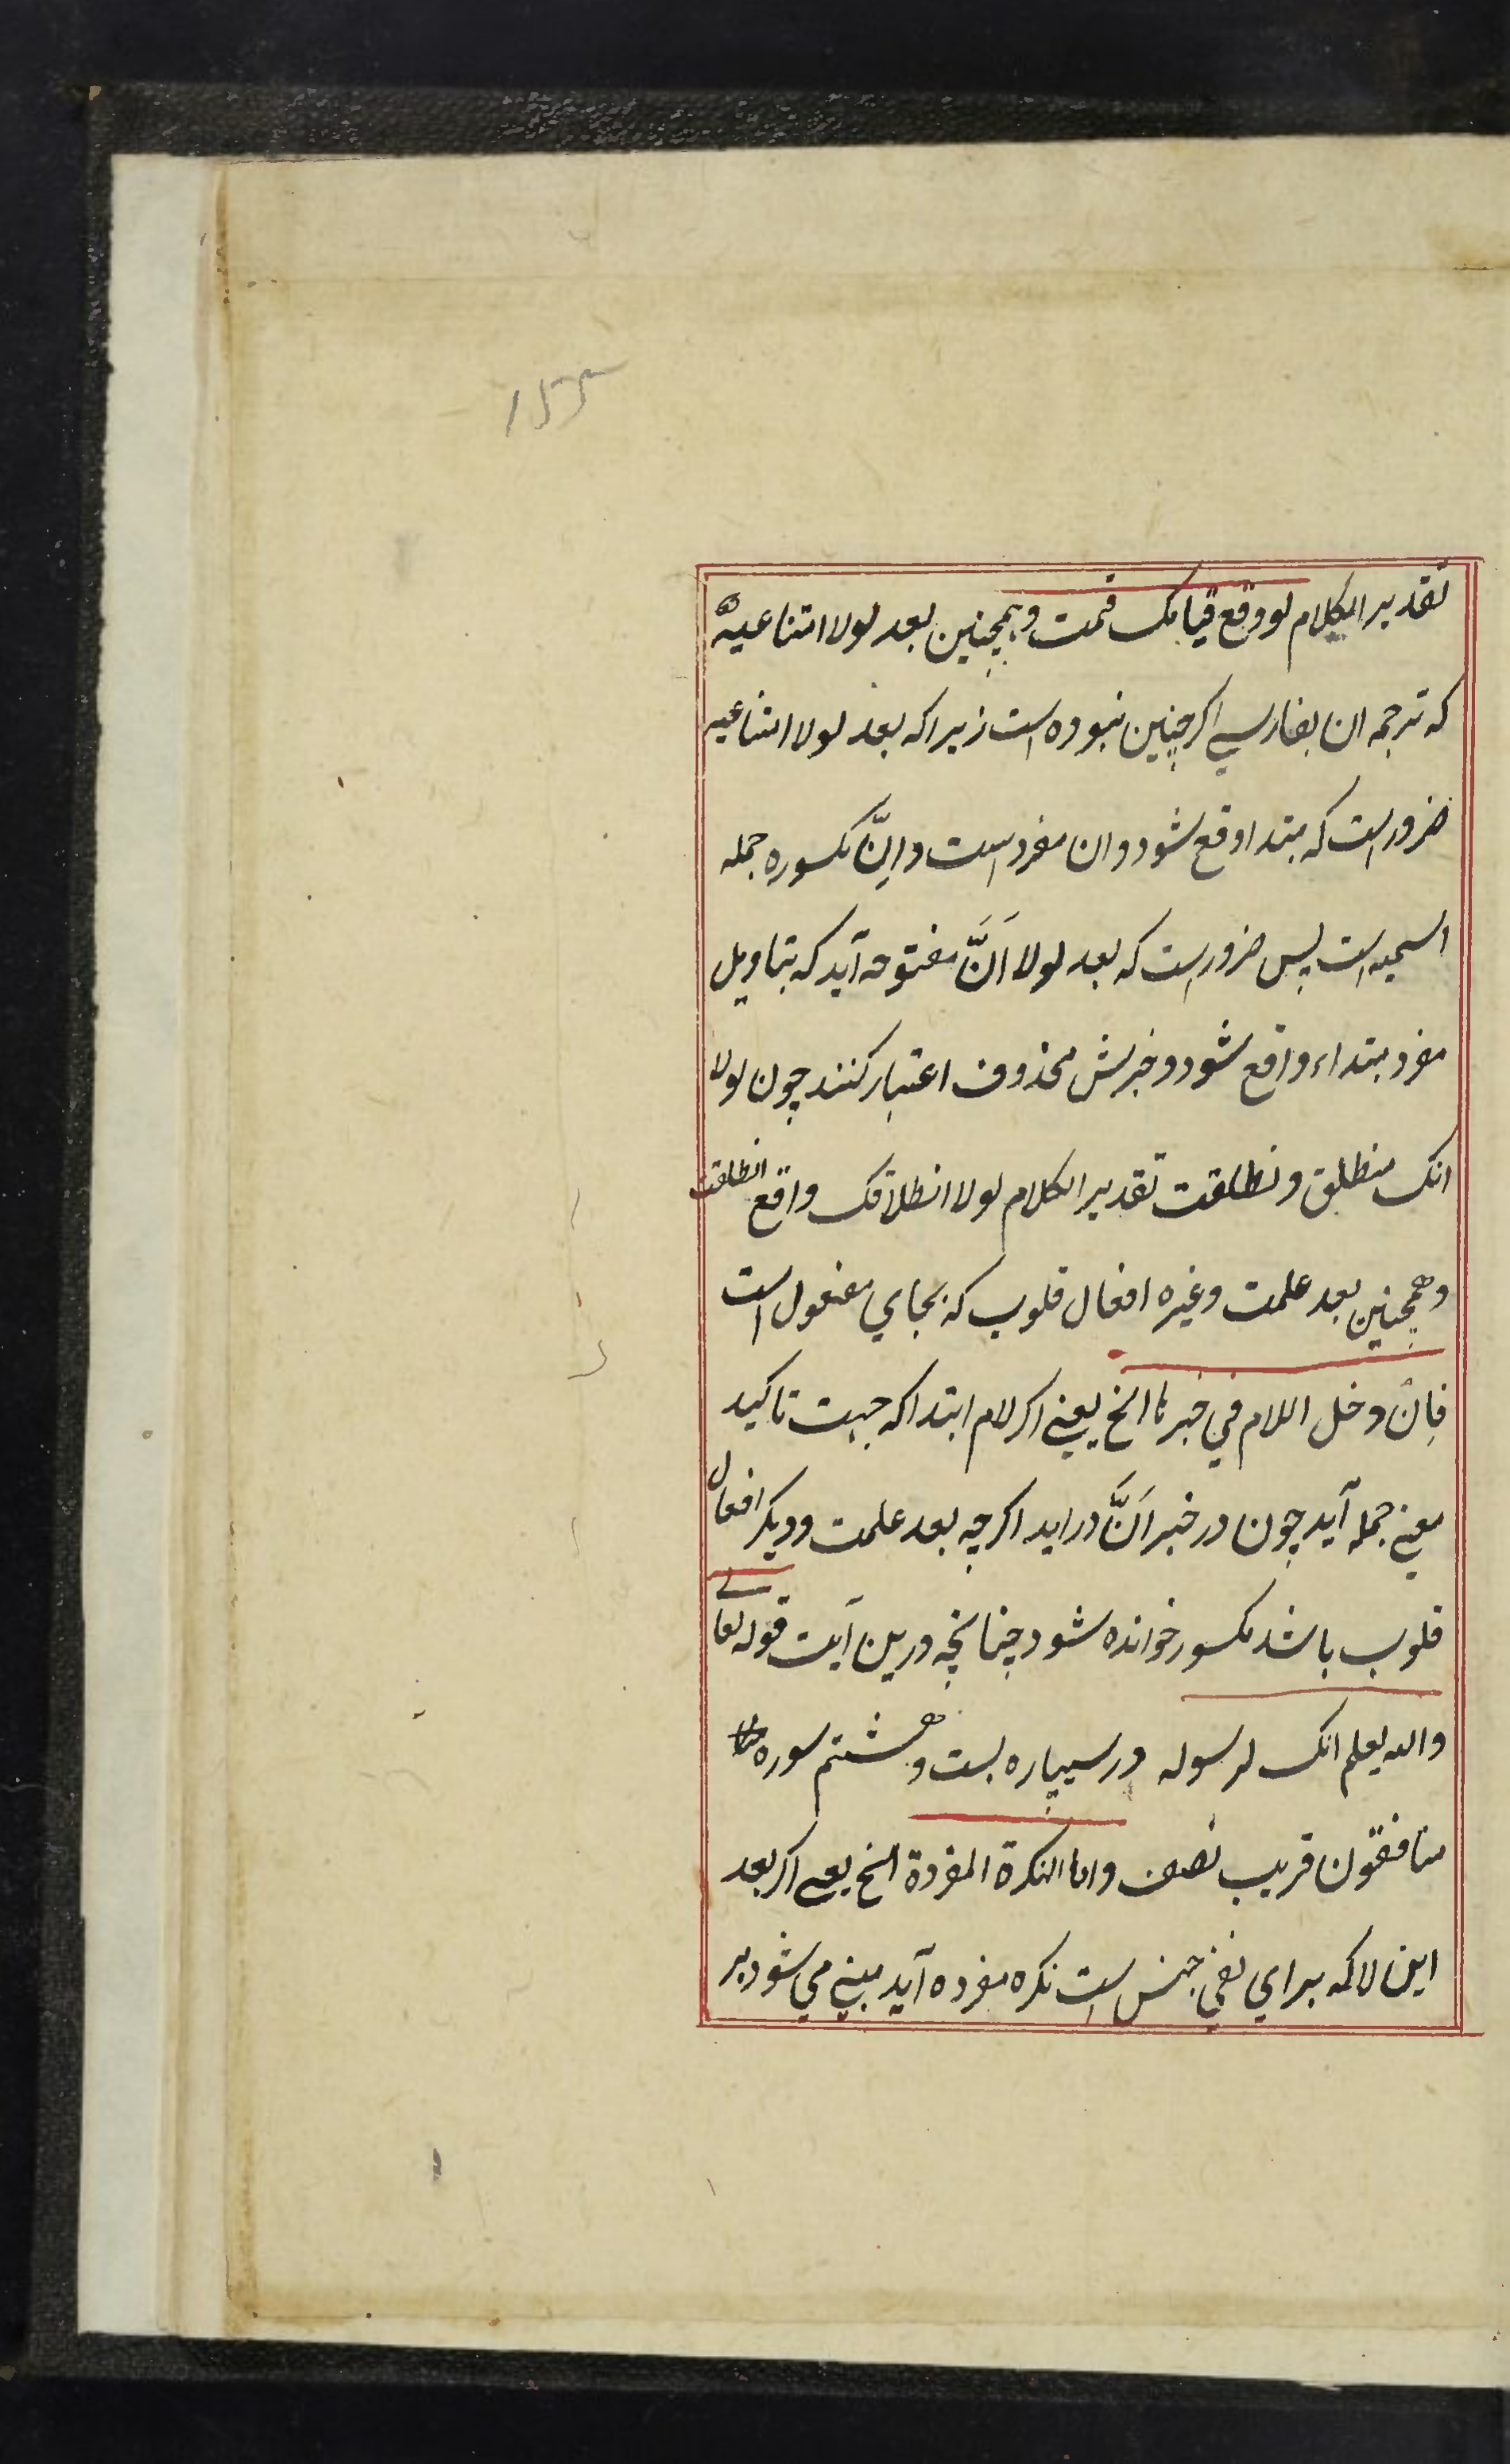 ۱۵۵
تقدیر الکلام لو وقع قیامک قمت وهمچنین بعد لولا امتناعیه
که ترجمه ان بفارسی اکر چنین نبوده است زیرا که بعد لولا امتناعیه
ضرور است که مبتدا وقع شود و ان مفرد است و اِنَّ مکسوره جمله
اسمیه است پس ضرور است که بعد لولا اَنَّ مفتوحه آید که بتاویل
مفرد مبتداء واقع شود و خبرش محذوف اعتبار کنند چون لولا
انک منطلق ونطلقت تقدیر الکلام لولا انطلاقک واقع انطلقت
وهمچنین بعد علمت وغیره افعال قلوب که بجای مفعول است
فاِن دخل اللام في خبرنا الخ یعنے اکر لام ابتدا که جهت تاکید
معنے جمله آید چون در خبر اَنَّ در اید اکرچه بعد علمت ودیکر افعال
قلوب باشد مکسور خوانده شود چنانچه درین آیت قوله تعالے
والله یعلم انک لرسوله درسیپاره بست وهشتم سوره
منافقون قریب نصف واما النکرة المفردة الخ یعے اکر بعد
این لا که برای نفي جنس است نکره مفرده آید مبنے می شود بر